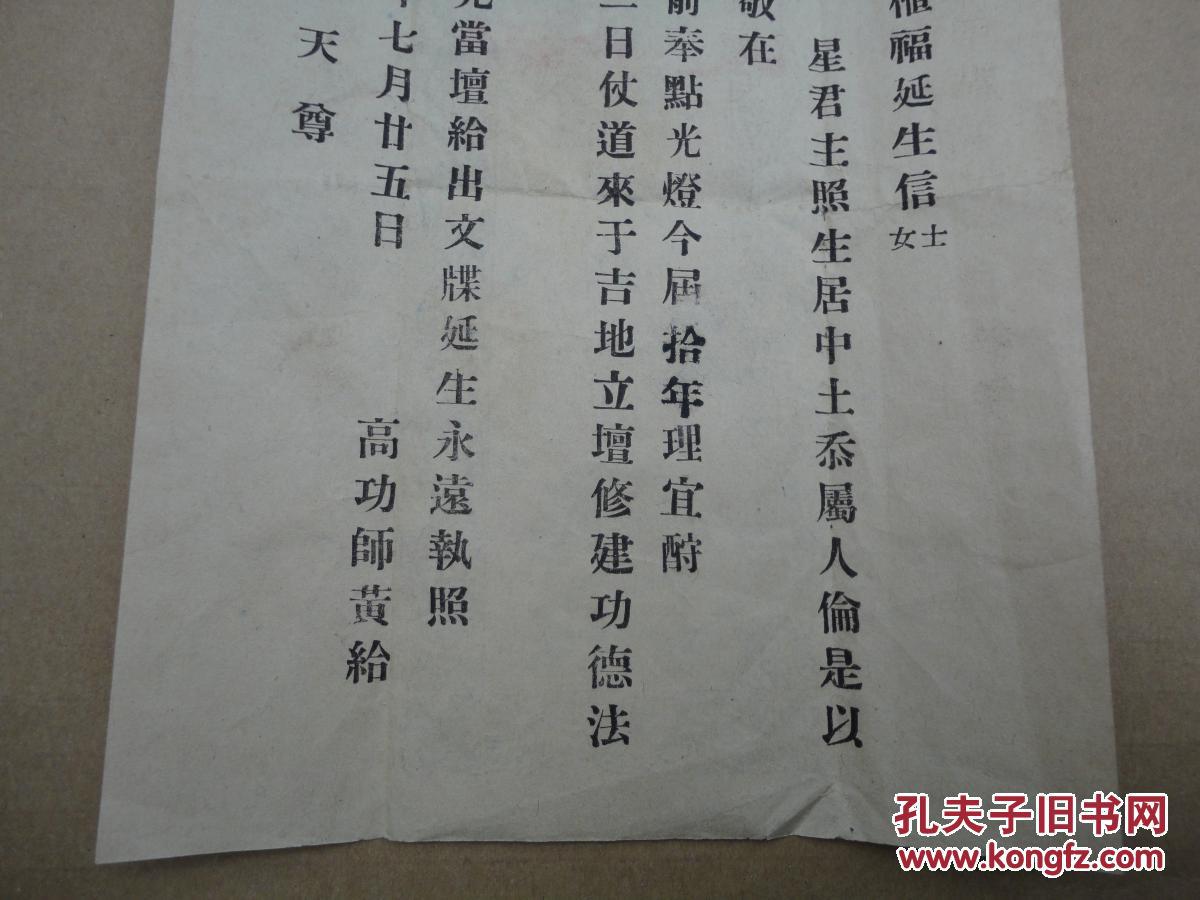 福延生信士女
星君主照生居中土忝屬人倫是以
敬在
前奉點光燈今届拾年理宜酧
日仗道來于吉地立壇修建功德法
當壇給出文牒延生永遠執照
七月廿五日
高功師黃給
天尊
孔夫子旧书网
www.kongfz.com